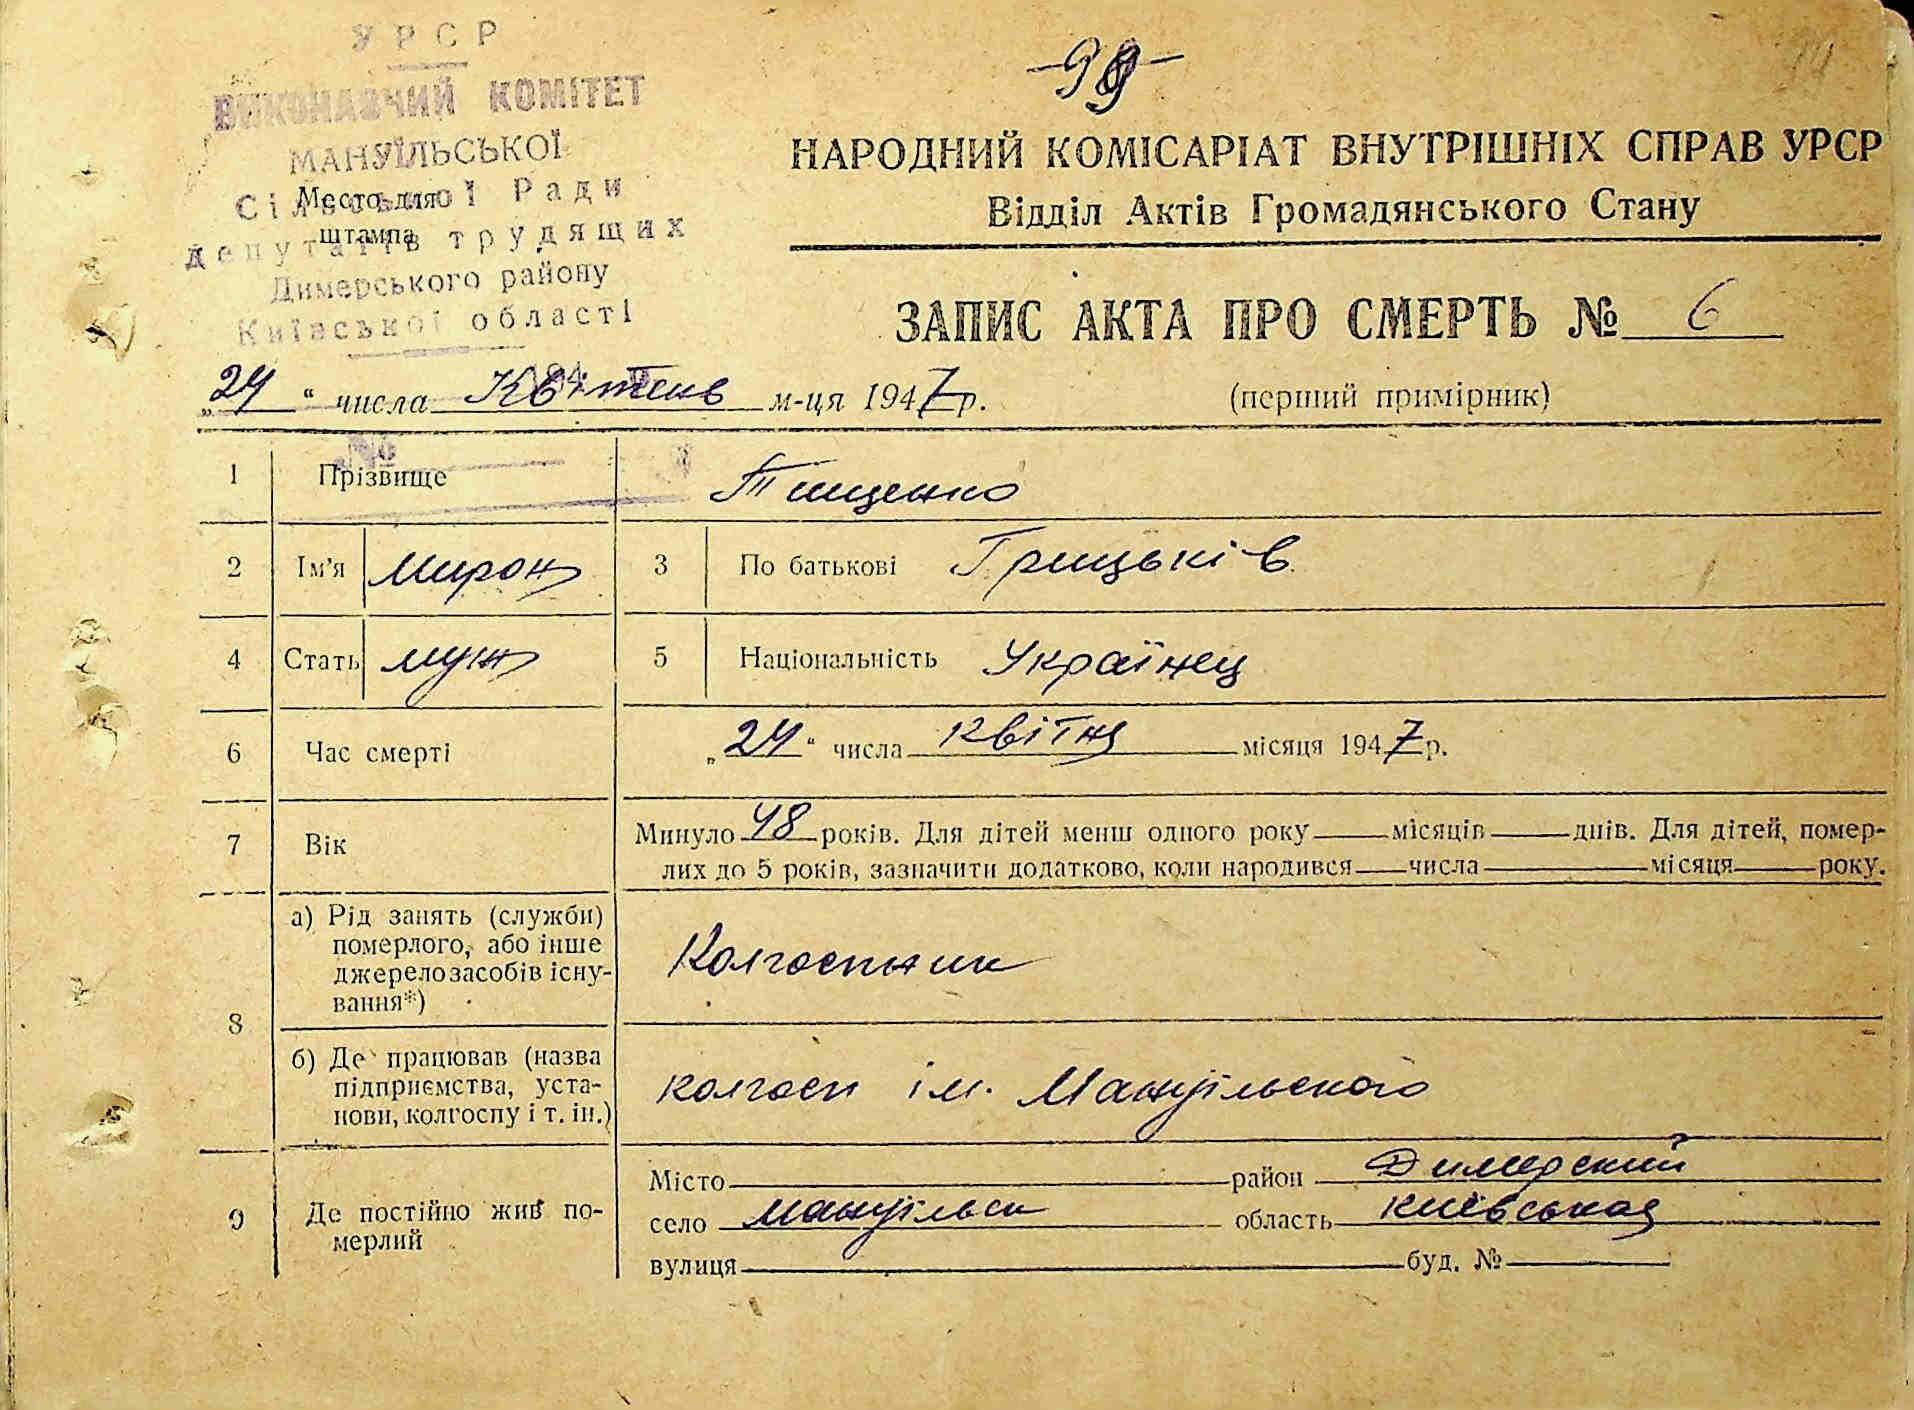 УРСР
ВИКОНАВЧИЙ КОМІТЕТ
МАНУЇЛЬСЬКОЇ
Сільської Ради
Место для
штампа
депутатів трудящих
Димерського району
Київської області
НАРОДНИЙ КОМІСАРІАТ ВНУТРІШНІХ СПРАВ УРСР
Відділ Актів Громадянського Стану
ЗАПИС АКТА ПРО СМЕРТЬ № 6
„24“ числа Квітень м-ця 1947 р. (перший примірник)
№
1 Прізвище Тищенко
2 Ім'я Мирон 3 По батькові Грицьків
4 Стать муж 5 Національність Українец
6 Час смерті „24“ числа квітня місяця 1947 р.
7 Вік Минуло 48 років. Для дітей менш одного року місяців днів. Для дітей, помер-
лих до 5 років, зазначити додатково, коли народився числа місяця року.
8 а) Рід занять (служби) померлого, або інше джерело засобів існу-вання*) Колгоспник
б) Де працював (назва підприємства, уста-нови, колгоспу і т. ін.) колгосп ім. Мануїльського
9 Де постійно жив по-мерлий
Місто район Димерский
село Мануїльск область київськая
вулиця буд. №